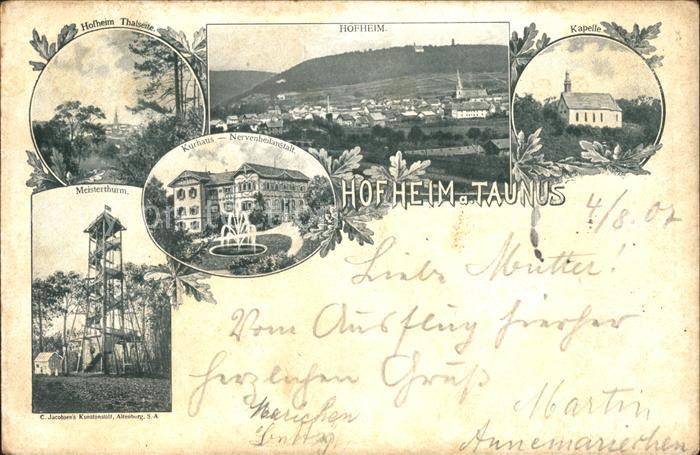 Hofheim Thalseite.
HOFHEIM.
Kapelle
Kurhaus — Nervenheilanstalt.
Meisterthurm.
HOFHEIM a. TAUNUS
4/8.07
Liebe Mutter!
Vom Ausflug hierher
herzlichen Gruß
Martin
Mariechen
Annemariechen
C. Jacobsen's Kunstanstalt, Altenburg, S.-A